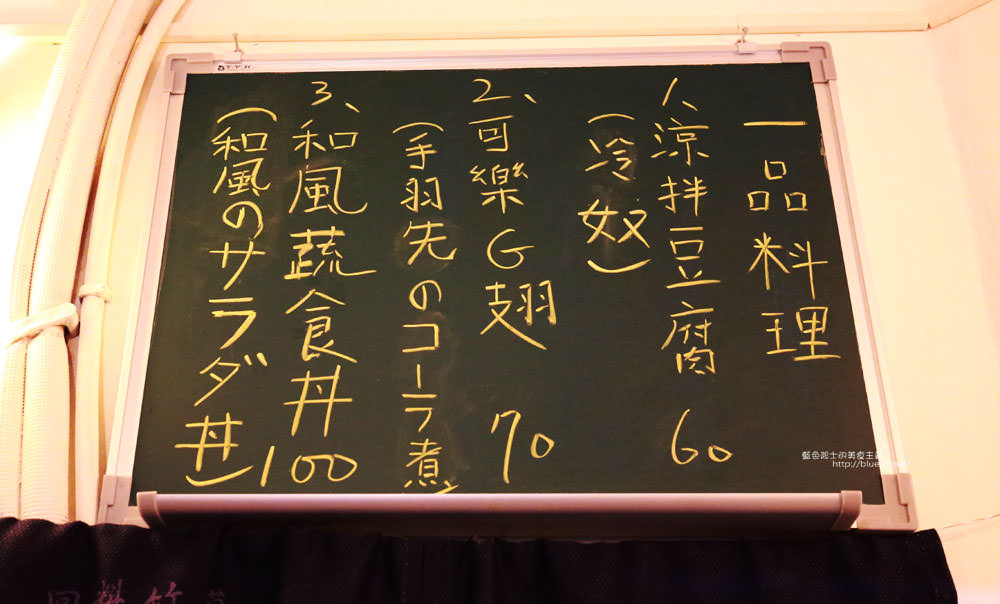 一品料理
1、涼拌豆腐 60
(冷奴)
2、可樂G翅 70
(手羽先のコーラ煮)
3、和風蔬食丼 100
(和風のサラダ丼)
藍色起士的美食主義